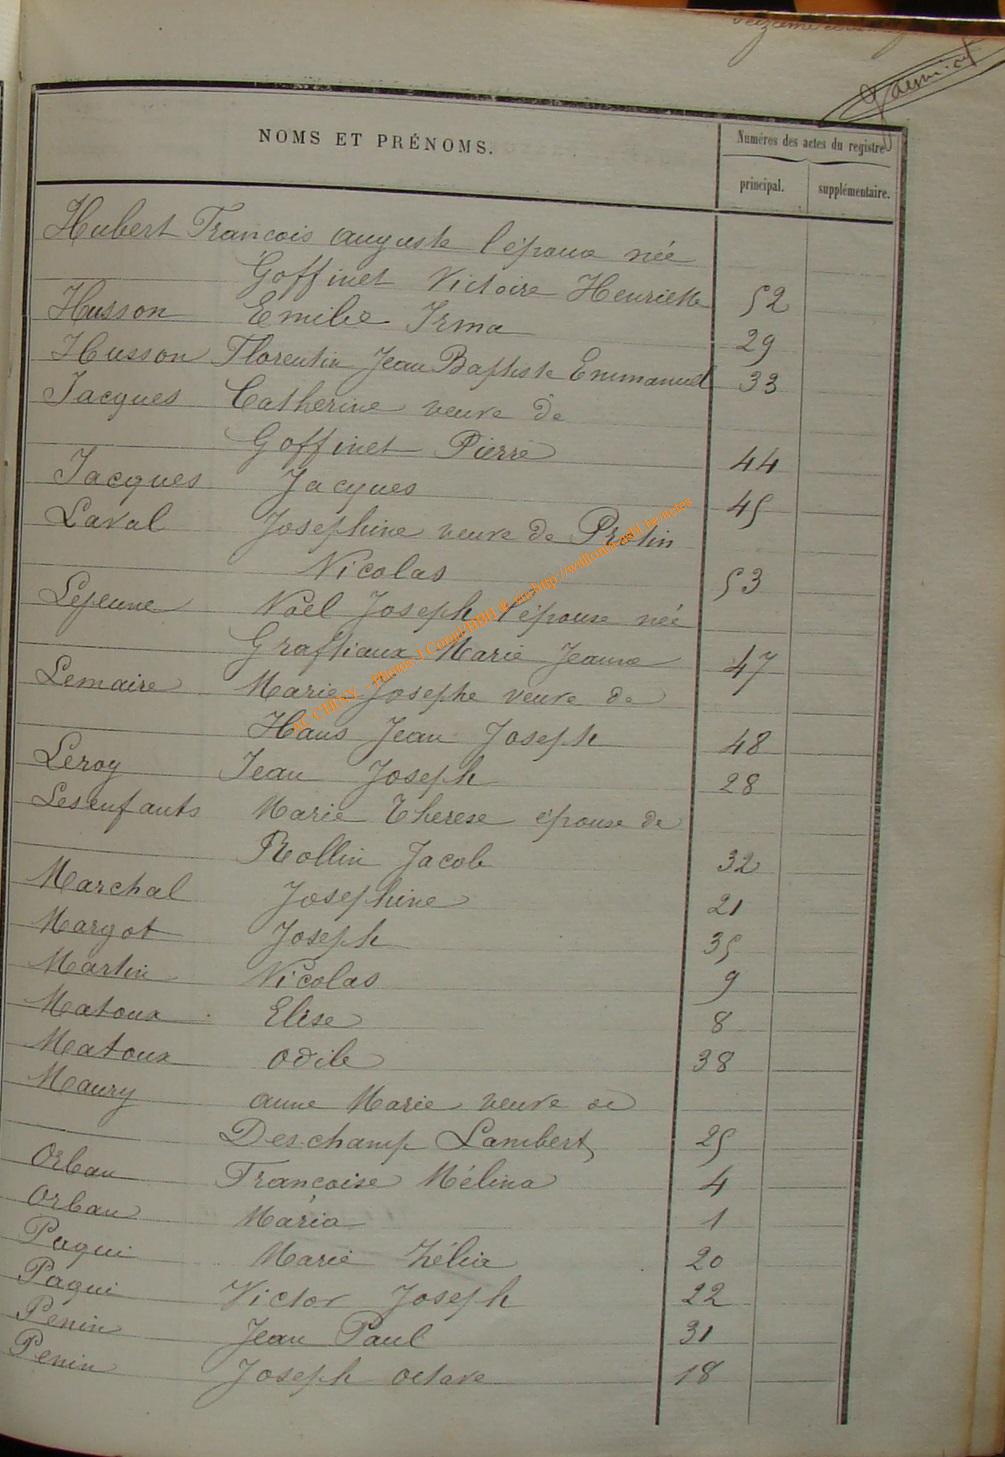 NOMS ET PRÉNOMS.
Numéros des actes du registre
principal. supplémentaire.
Hubert François Auguste l'époux née
Goffinet Victoire Henriette 52
Husson Emilie Irma 29
Husson Florentin Jean Baptiste Emmanuel 33
Jacques Catherine veuve de
Goffinet Pierre 44
Jacques Jacques 45
Laval Josephine veuve de Protin
Nicolas 53
Lejeune Noël Joseph l'épouse née
Graftiaux Marie Jeanne 47
Lemaire Marie Josephe veuve de
Haus Jean Joseph 48
Leroy Jean Joseph 28
Lesenfants Marie Therese épouse de
Rollin Jacob 32
Marchal Josephine 21
Margot Joseph 35
Martin Nicolas 9
Matoux Elise 8
Matoux Odile 38
Maury Anne Marie veuve de
Deschamp Lambert 25
Orban Françoise Mélina 4
Orban Maria 1
Paqui Marie Zélia 20
Paqui Victor Joseph 22
Penin Jean Paul 31
Penin Joseph Octave 18